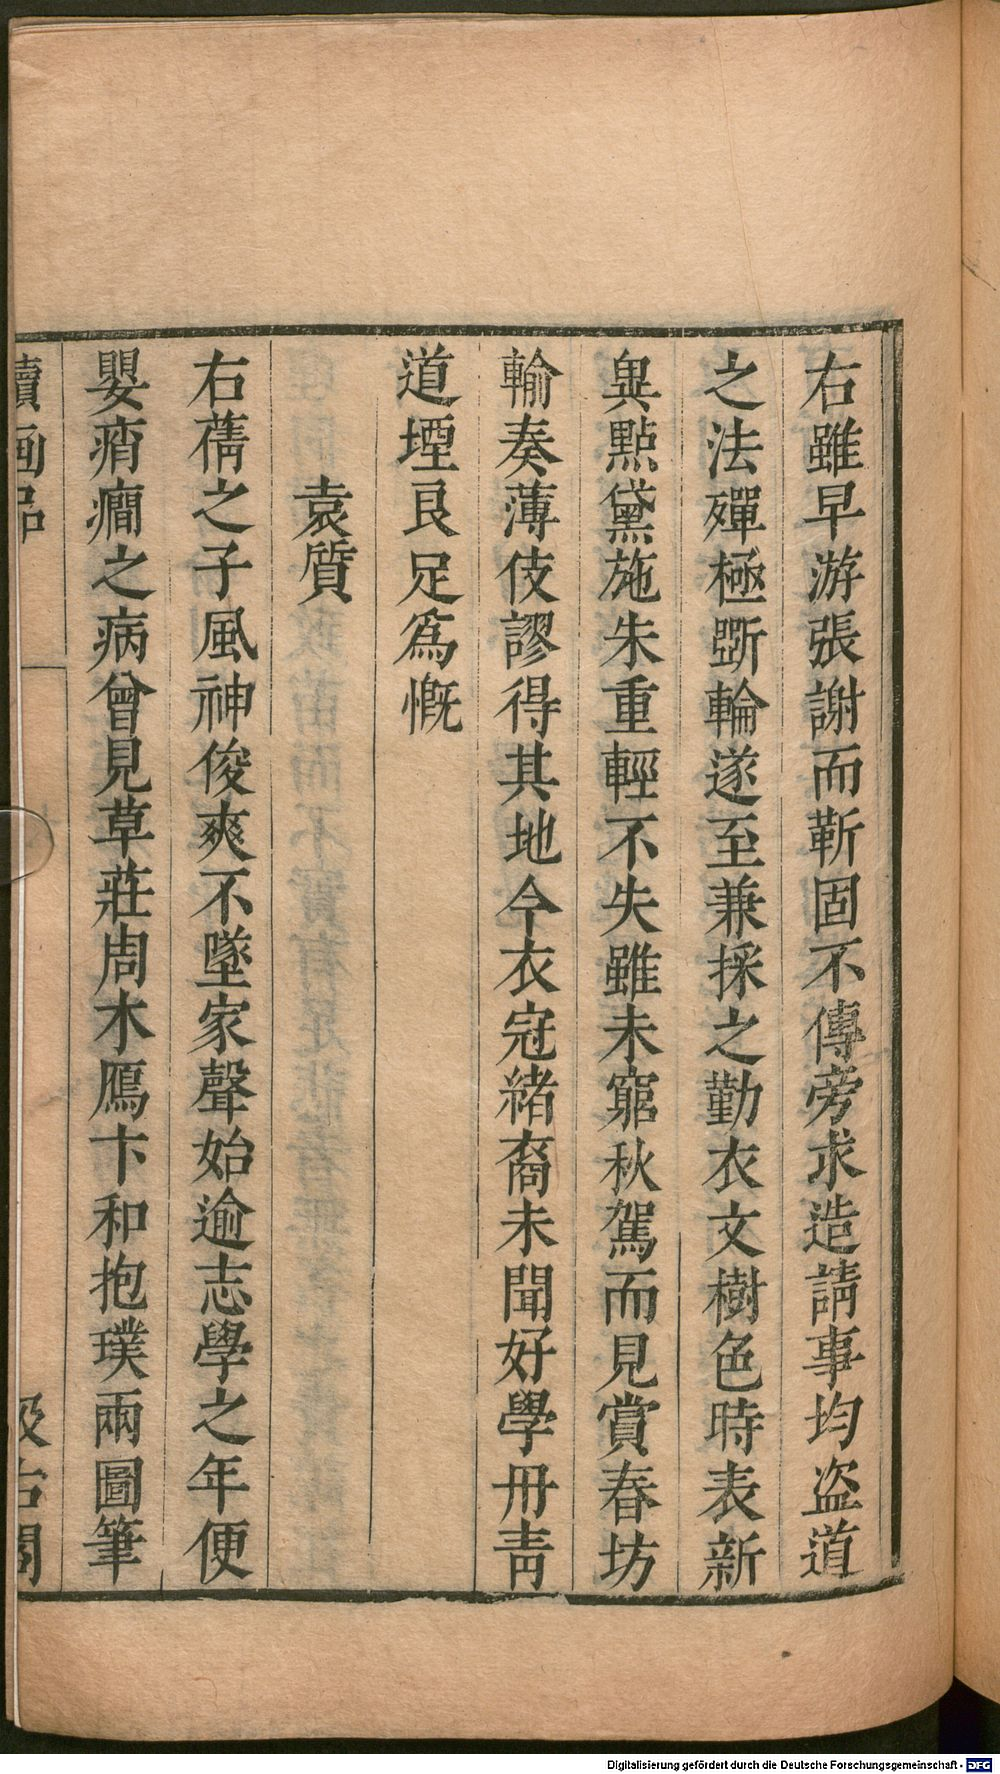 右雖早游張謝而靳固不傳旁求造請事均盗道
之法殫極斵輪遂至兼採之勤衣文樹色時表新
異點黛施朱重輕不失雖未窮秋駕而見賞春坊
輸奏薄伎謬得其地今衣冠緒裔未聞好學丹青
道堙良足爲慨
袁質
右蒨之子風神俊爽不墜家聲始逾志學之年便
嬰痟癎之病曾見草莊周木鴈卞和抱璞兩圖筆
續画品
汲古閣
Digitalisierung gefördert durch die Deutsche Forschungsgemeinschaft - DFG